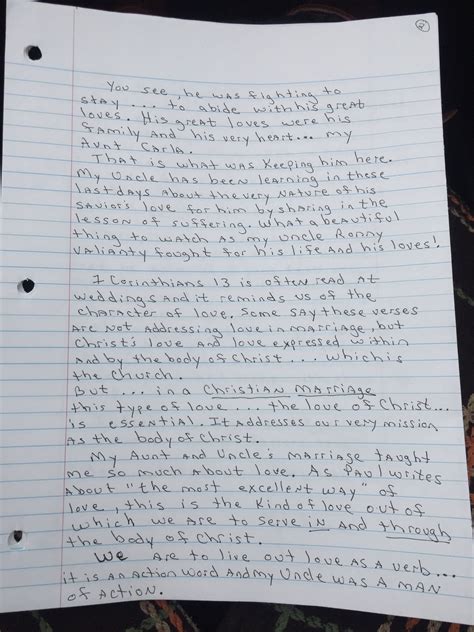 2
You see, he was fighting to
stay ... to abide with his great
loves. His great loves were his
family and his very heart... my
Aunt Carla.
That is what was keeping him here.
My Uncle has been learning in these
last days about the very nature of his
savior's love for him by sharing in the
lesson of suffering. What a beautiful
thing to watch as my Uncle Ronny
valiantly fought for his life and his loves!
1 Corinthians 13 is often read at
weddings and it reminds us of the
character of love. Some say these verses
are not addressing love in marriage, but
Christ's love and love expressed within
and by the body of Christ ... which is
the church.
But ... in a Christian Marriage
this type of love ... the love of Christ...
is essential. It addresses our very mission
as the body of Christ.
My Aunt and Uncle's marriage taught
me so much about love. As Paul writes
about "the most excellent way" of
love, this is the kind of love out of
which we are to serve in and through
the body of Christ.
We are to live out love as a verb...
it is an action word and my Uncle was a man
of action.